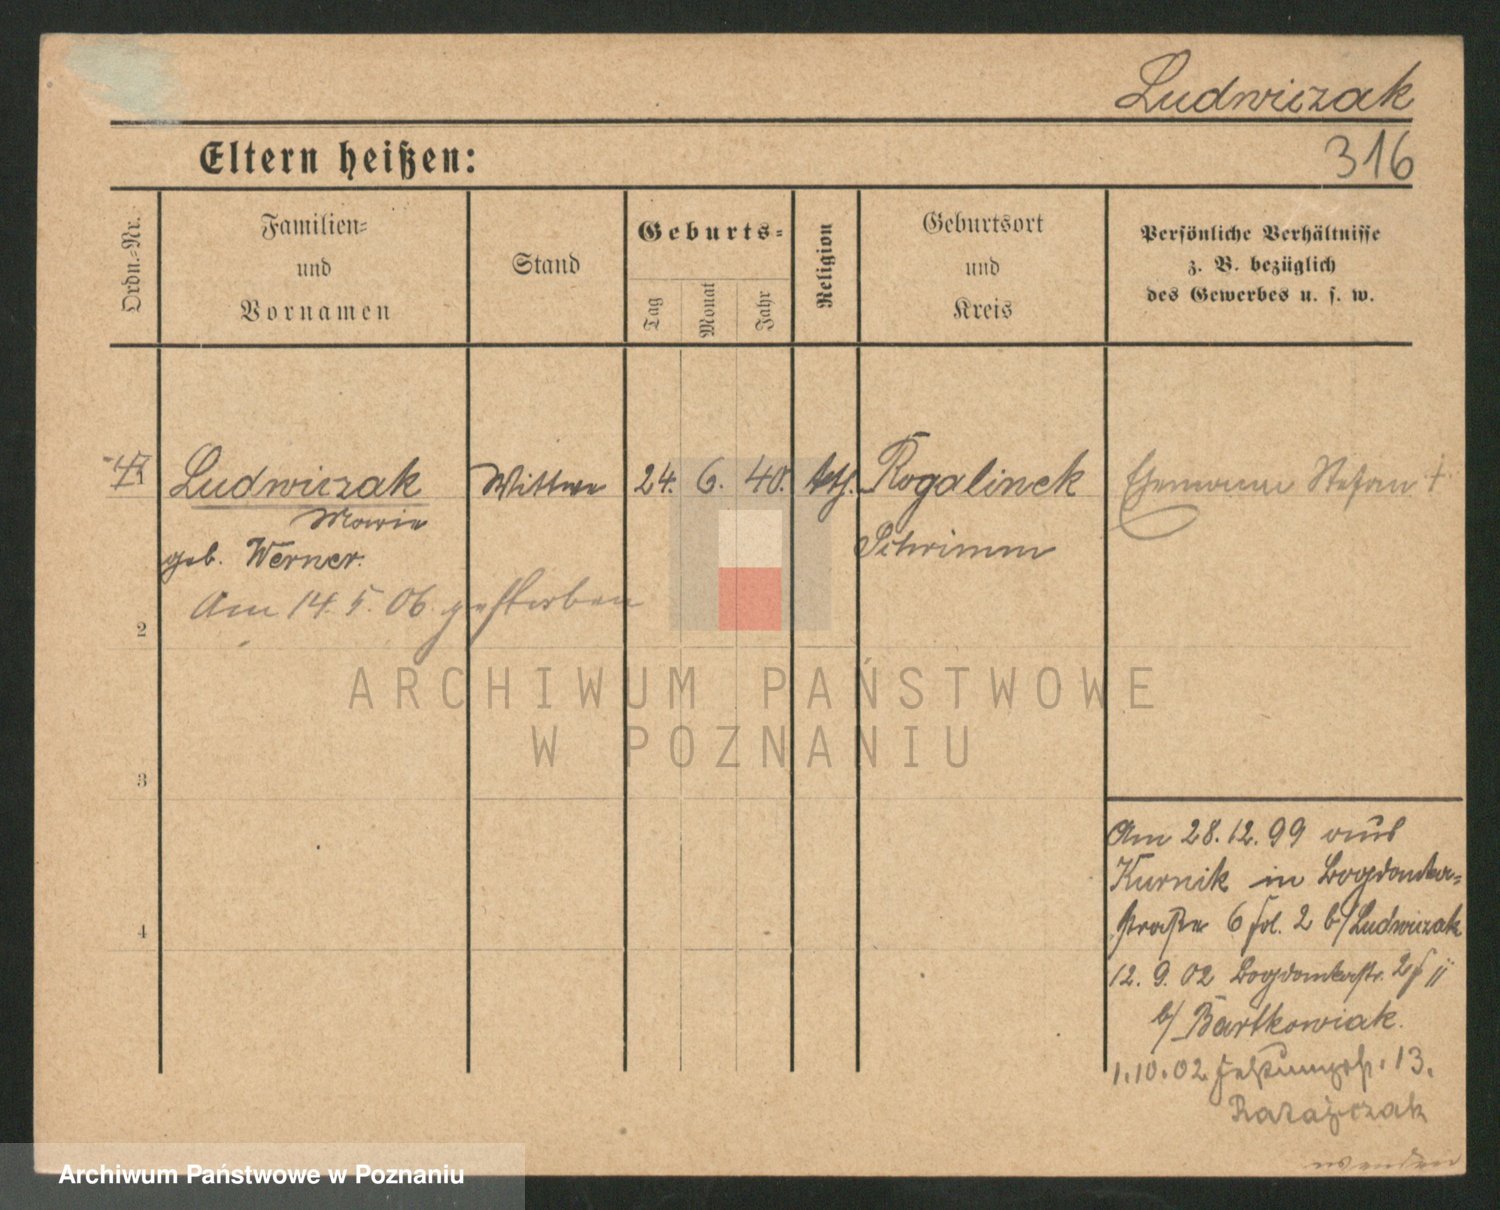 Ludwiczak
Eltern heißen:
316
Ordn.-Nr.
Familien-
und
Vornamen
Stand
Geburts-
Tag
Monat
Jahr
Religion
Geburtsort
und
Kreis
Persönliche Verhältnisse
z. B. bezüglich
des Gewerbes u. s. w.
Ludwiczak
Marie
geb. Werner.
Wittwe
24. 6. 40.
kath.
Rogalinek
Schrimm
Ehemann Stefan †
Am 14. 5. 06. gestorben
2
3
4
Am 28.12.99 aus
Kurnik in Bogdanka-
straße 6 fol. 2 b/Ludwiczak
12. 9. 02 Bogdankastr. 2
b/ Bartkowiak.
1.10.02 13.
Ratajczak
wenden
ARCHIWUM PAŃSTWOWE
W POZNANIU
Archiwum Państwowe w Poznaniu